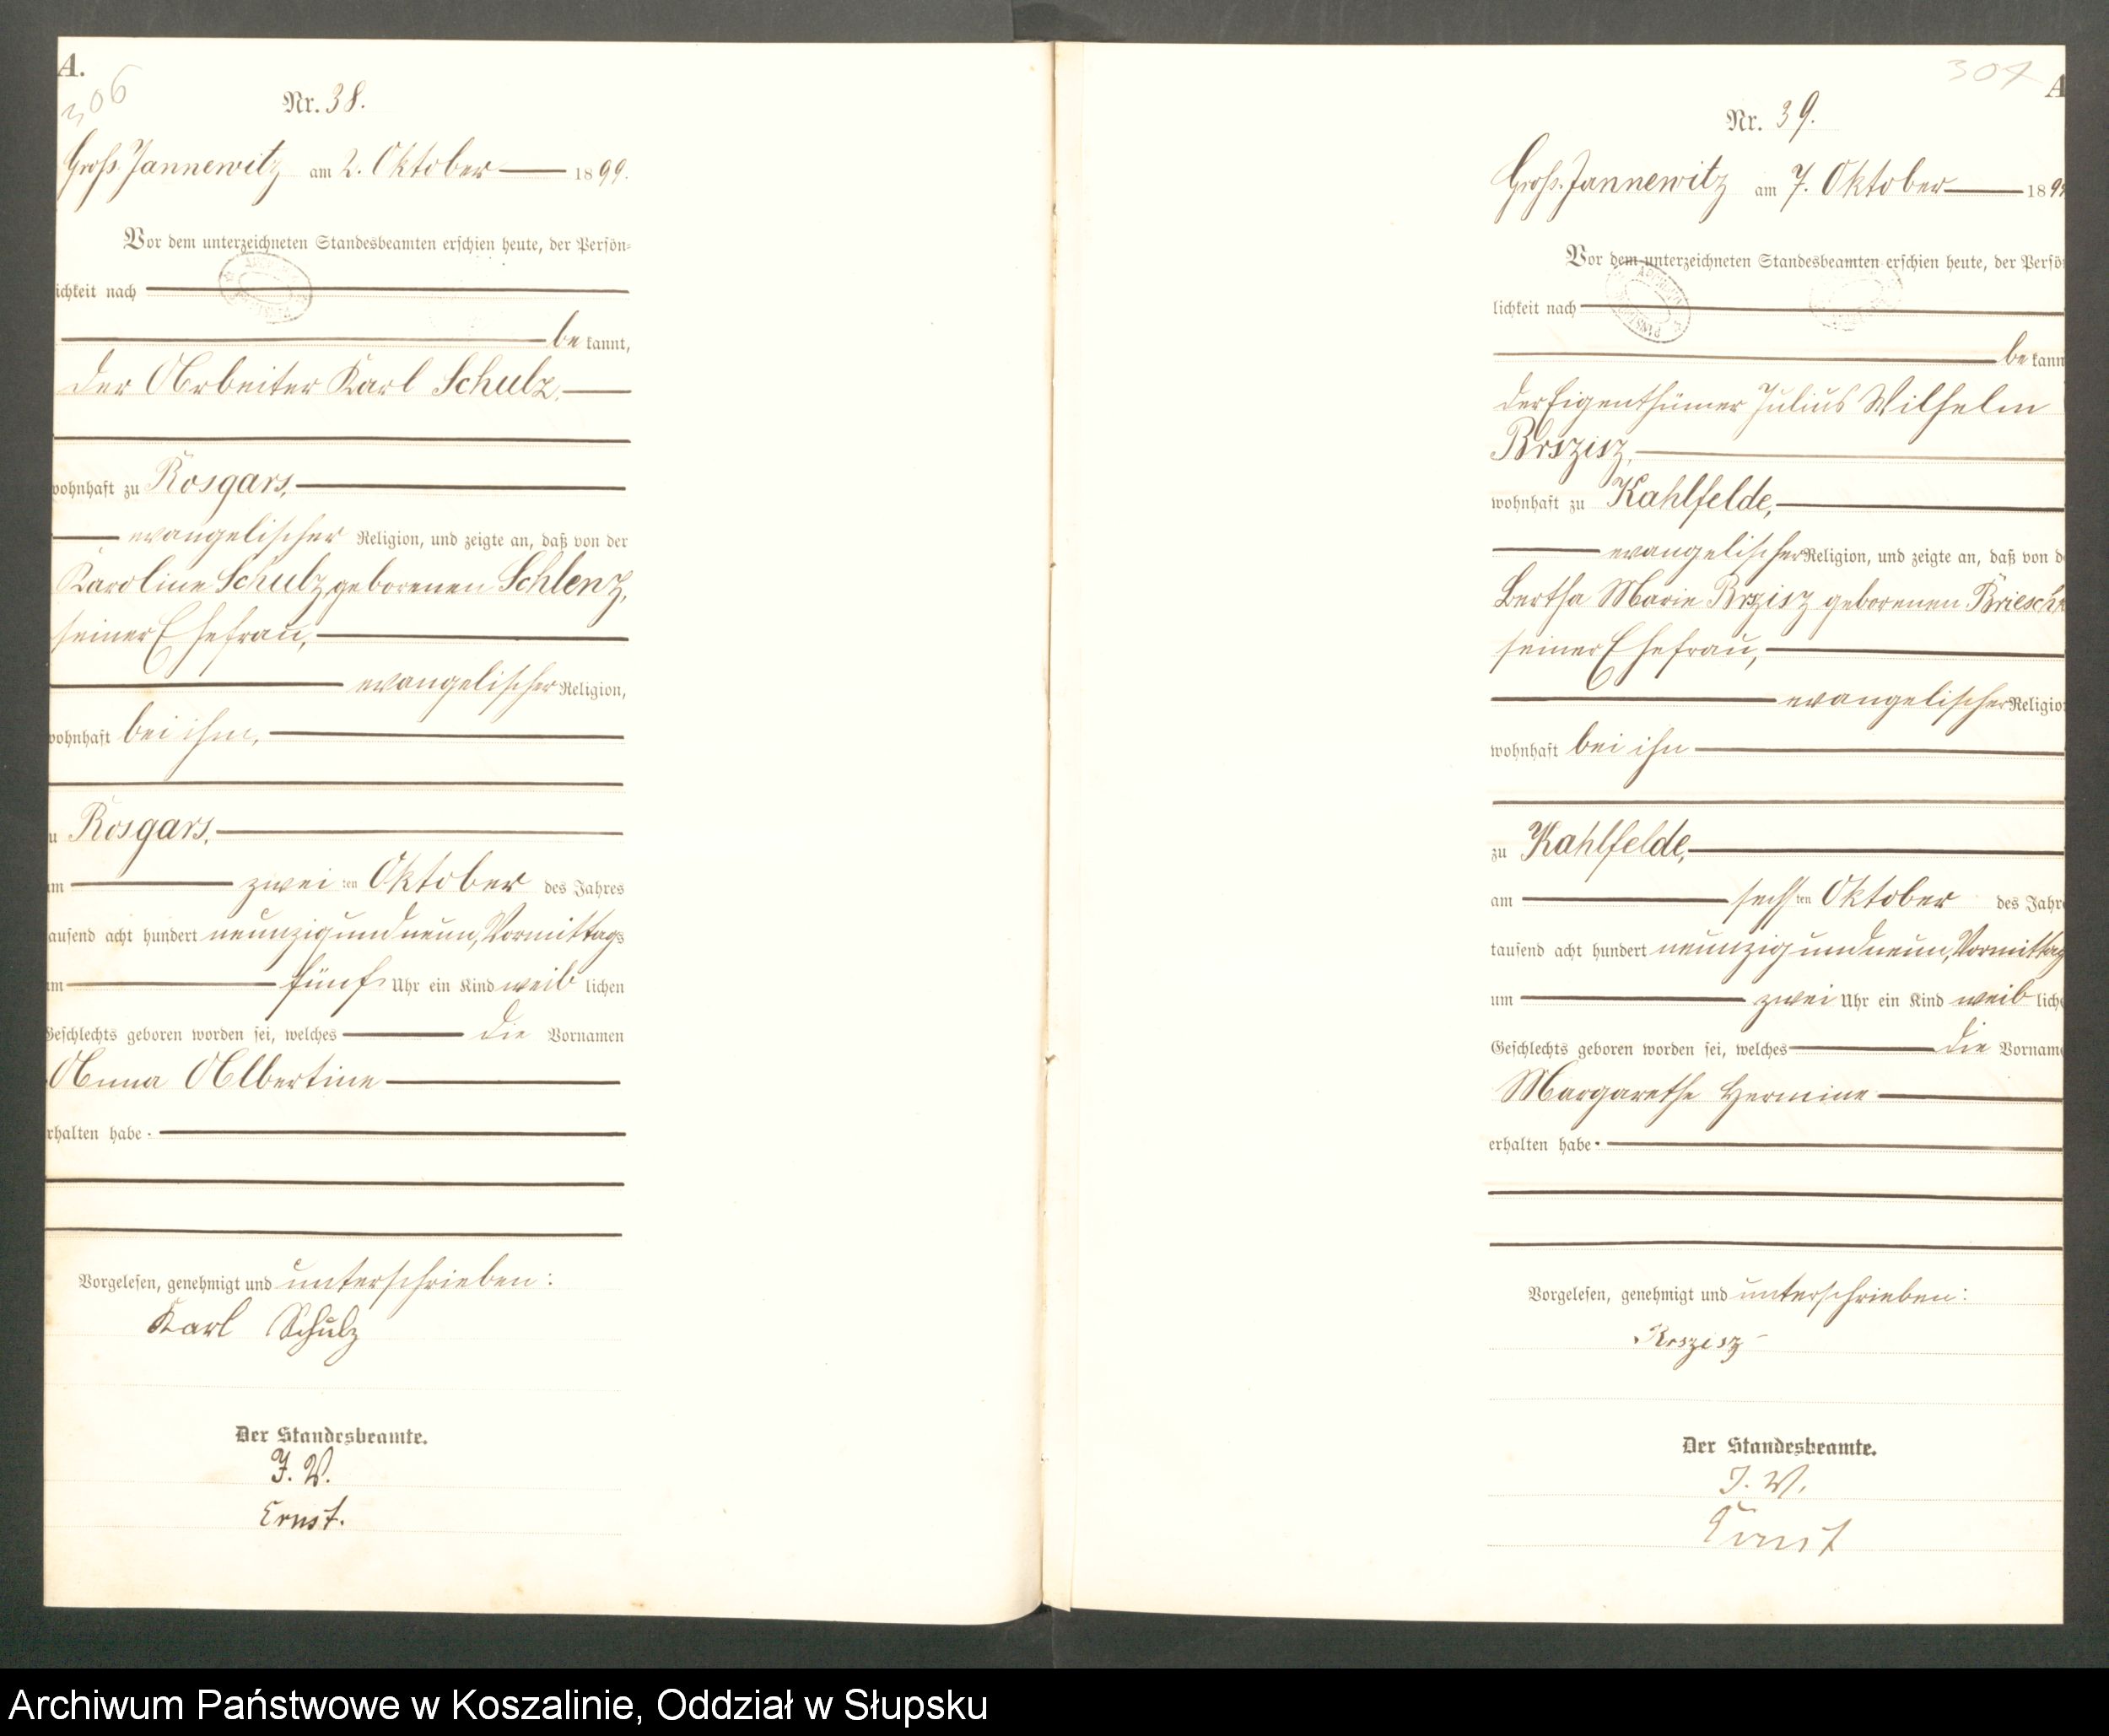 A.
306
Nr. 38.
Groß Jannewitz am 2. Oktober 1899.
Vor dem unterzeichneten Standesbeamten erschien heute, der Persön-
ichkeit nach
be kannt,
der Arbeiter Karl Schulz,
wohnhaft zu Rosgars,
evangelischer Religion, und zeigte an, daß von der
Karoline Schulz geborenen Schlenz,
seiner Ehefrau,
evangelischer Religion,
wohnhaft bei ihm,
u Rosgars,
am zwei ten Oktober des Jahres
tausend acht hundert neunzig und neun, Vormittags
um fünf Uhr ein Kind weib lichen
Geschlechts geboren worden sei, welches die Vornamen
Anna Albertine
erhalten habe.
Vorgelesen, genehmigt und unterschrieben:
Karl Schulz
Der Standesbeamte.
J. V.
Ernst.
307 A
Nr. 39.
Groß Jannewitz am 7. Oktober 1899
Vor dem unterzeichneten Standesbeamten erschien heute, der Persö
lichkeit nach
be kann
der Eigenthümer Julius Wilhelm
Brszisz,
wohnhaft zu Kahlfelde,
evangelischer Religion, und zeigte an, daß von de
Bertha Marie Brzisz geborenen
seiner Ehefrau,
evangelischer Religio
wohnhaft bei ihn
zu Kahlfelde,
am sechs ten Oktober des Jahre
tausend acht hundert neunzig und neun, Vormittag
um zwei Uhr ein Kind weib liche
Geschlechts geboren worden sei, welches die Vorname
Margarethe Hermine
erhalten habe.
Vorgelesen, genehmigt und unterschrieben:
Brszisz
Der Standesbeamte.
J. V.
Ernst
Archiwum Państwowe w Koszalinie, Oddział w Słupsku